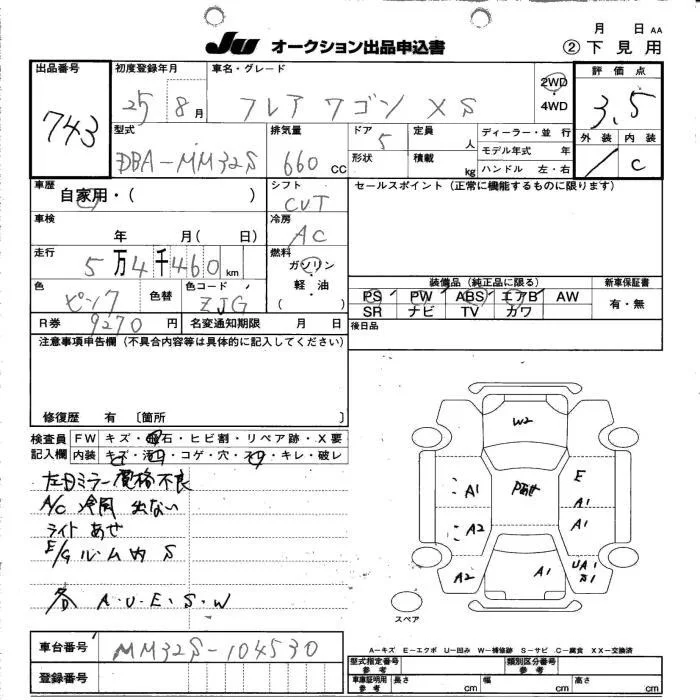 Ju オークション出品申込書
月 日 AA
② 下見用
出品番号
743
初度登録年月
25 8月
車名・グレード
フレア ワゴン XS
2WD
4WD
評価点
3.5
外装 内装
C
型式
DBA-MM32S
排気量
660 cc
ドア
5
定員
人
形状
積載
kg
ディーラー・並 行
モデル年式 年
ハンドル 左・右
車歴
自家用・( )
シフト
CVT
セールスポイント (正常に機能するものに限ります)
車検
年 月( 日)
冷房
AC
走行
5万4千460 km
燃料
ガソリン
軽・油
( )
色
ピンク
色替
色コード
ZJG
装備品 (純正品に限る)
新車保証書
PS PW ABS エアB AW
SR ナビ TV カワ
有・無
R券 9270 円
名変通知期限 月 日
後日品
注意事項申告欄 (不具合内容等は具体的に記入してください)
修復歴 有 〔箇所 〕
検査員
記入欄
FW キズ・飛石・ヒビ割・リペア跡・X要
内装 キズ・汚・コゲ・穴・スレ・キレ・破レ
左目ミラー 格 不良
A/C 冷 出ない
ライト あせ
E/Gルーム内 S
各 A・U・E・S・W
W2
Pあせ
A1
A2
A2
E
A1
A1
UA1
A1
スペア
A－キズ E－エクボ U－凹み W－補修跡 S－サビ C－腐食 XX－交換済
車台番号
MM32S-104530
登録番号
型式指定番号
参考
類別区分番号
参考
車庫証明用
参考
長さ
cm
幅
cm
高さ
cm